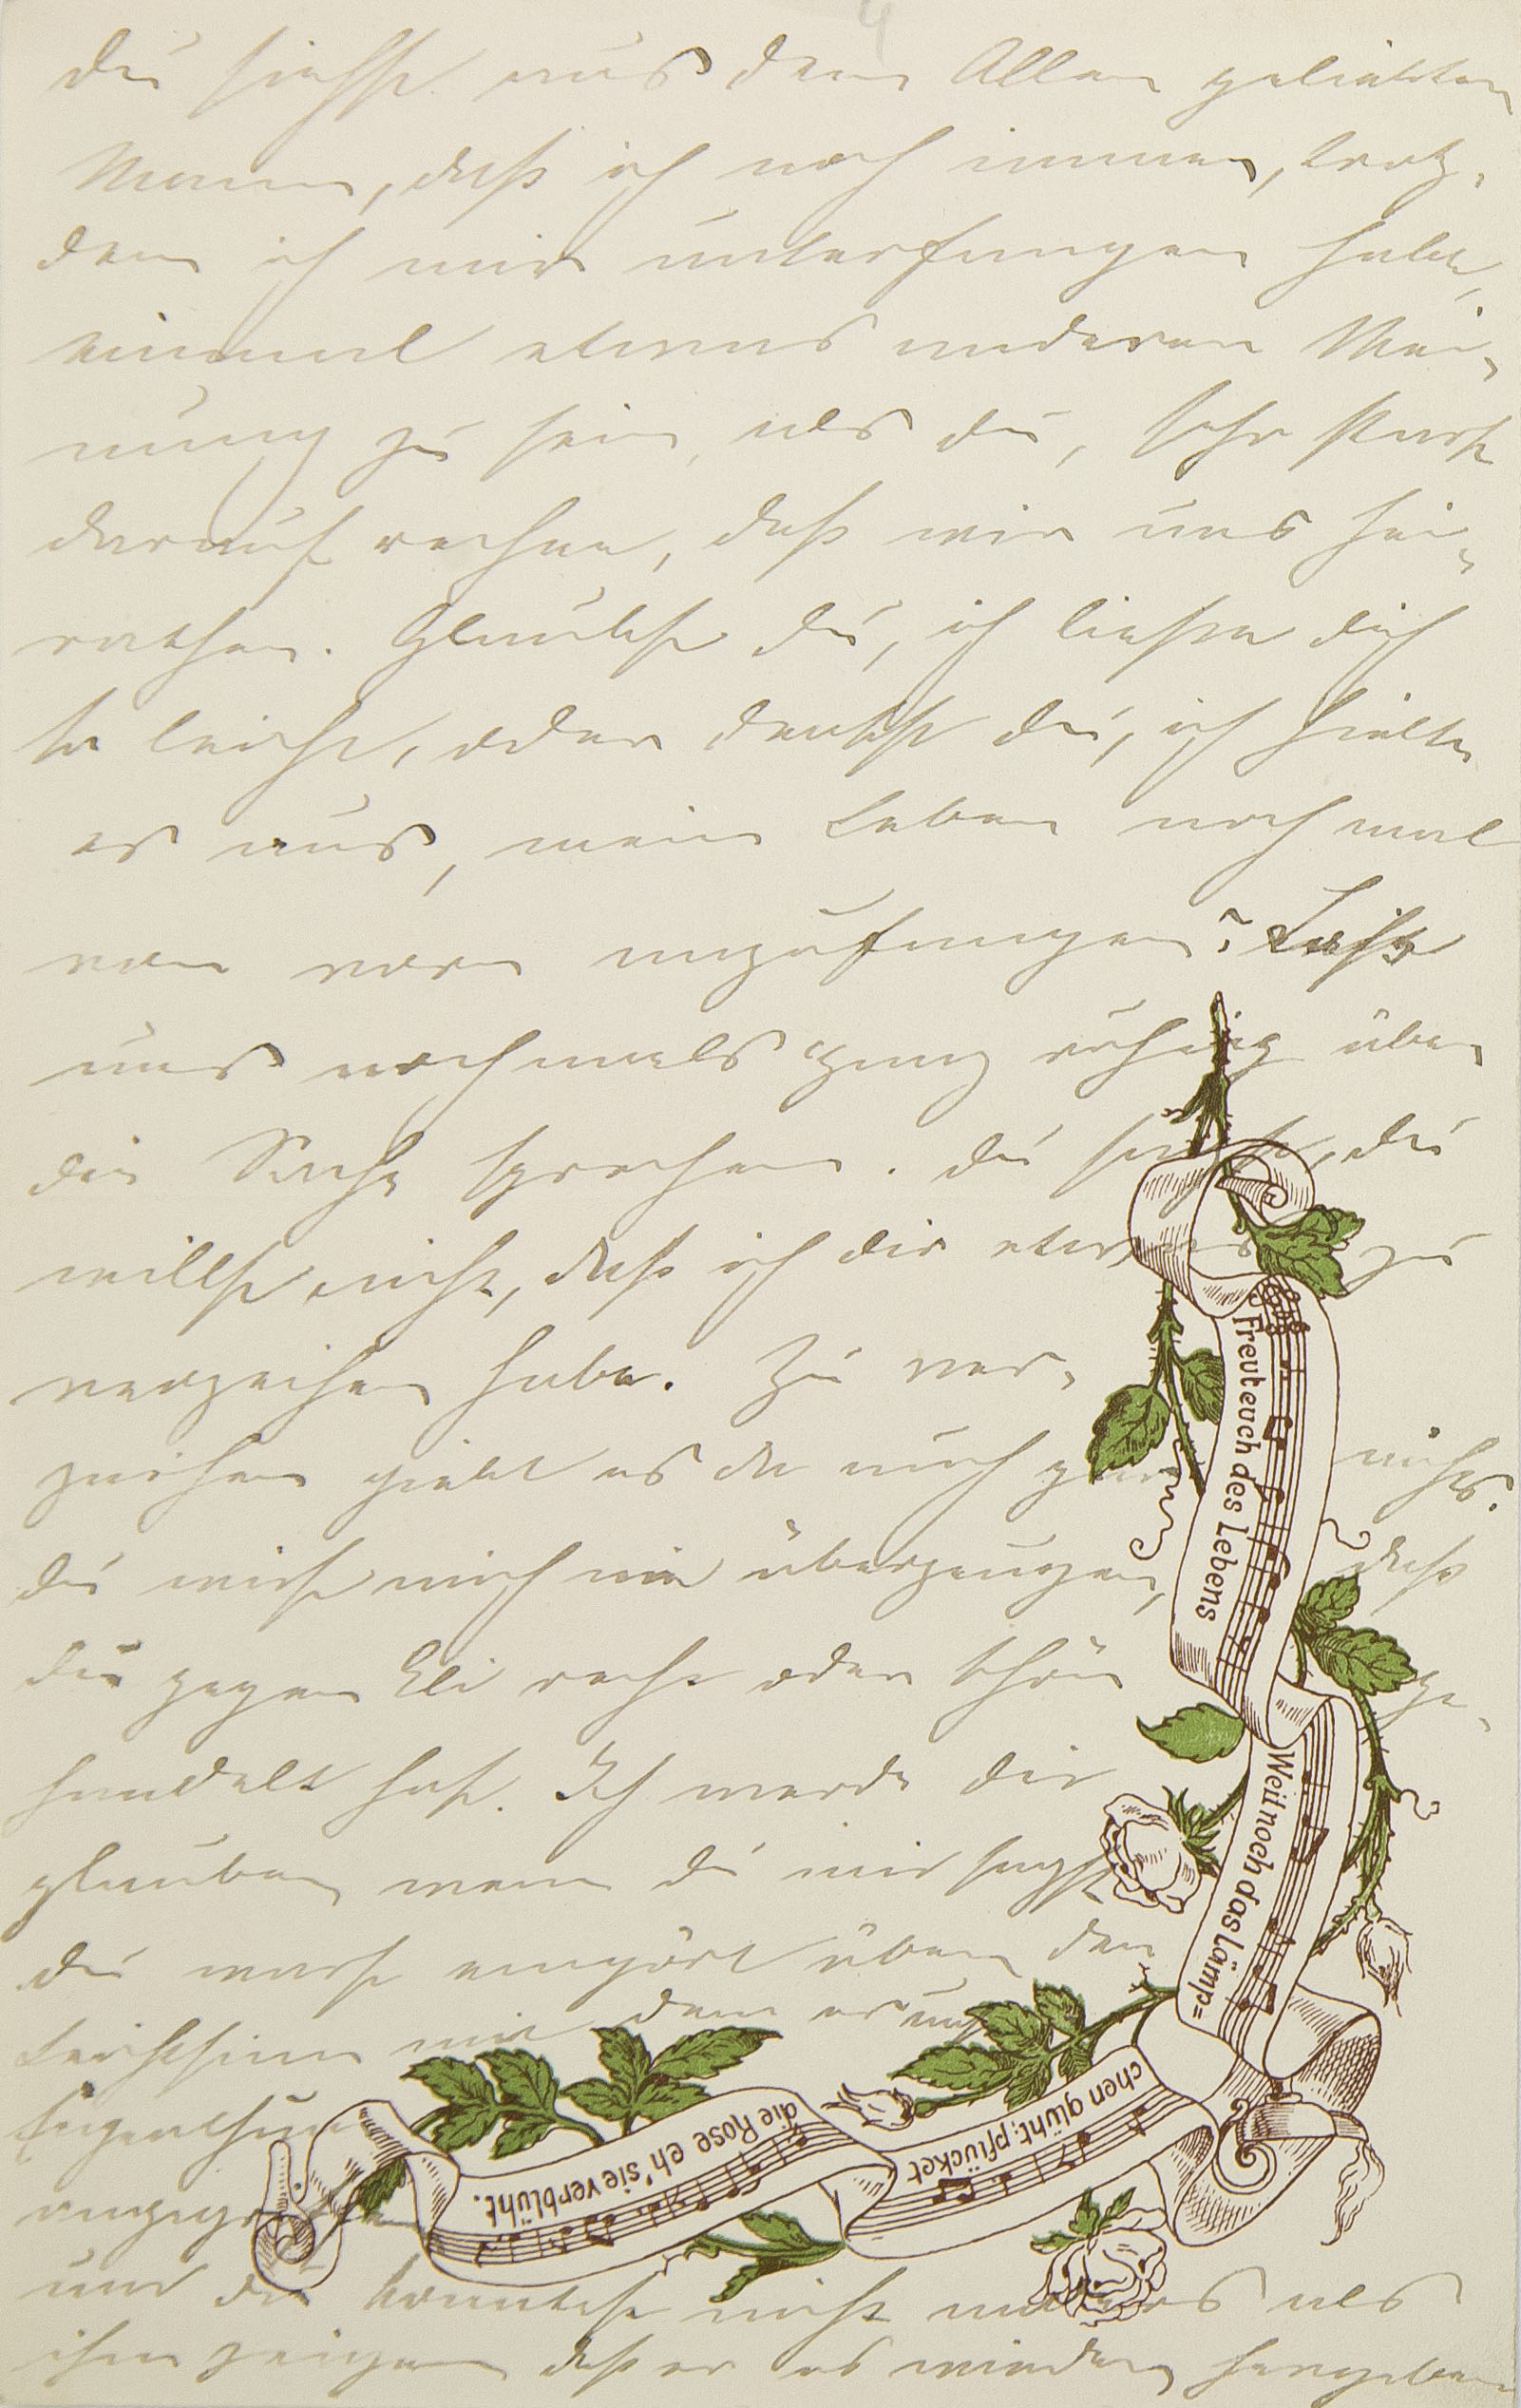 4
Du siehst aus dem Allen geliebter
Mann, daß ich noch immer, trotz-
dem ich mir unterfangen habe,
einmal etwas anderer Mei-
nung zu sein, als Du, sehr stark
darauf rechne, daß wir uns hei-
rathen. Glaubst Du, ich ließe Dich
so leicht, oder denkst Du, ich hielte
es aus, mein Leben noch mal
von vorn anzufangen? Laß
uns nochmals ganz ruhig über
die Sache sprechen. Du sagst, Du
willst nicht, daß ich Dir etwas zu
verzeihen habe. Zu ver-
zeihen giebt es da auch gar nichts.
Du wirst mich nie überzeugen, daß
Du gegen Eli recht oder schön ge-
handelt hast. Ich werde Dir
glauben wenn Du mir sagst
Du warst empört über den
Leichtsinn mit dem er
Eigenthum
und Du konntest nicht anders als
ihm zeigen daß er es wieder hergeben
Freut euch des Lebens
Weil noch das Lämp=
chen glüht; pflücket
die Rose eh' sie verblüht.